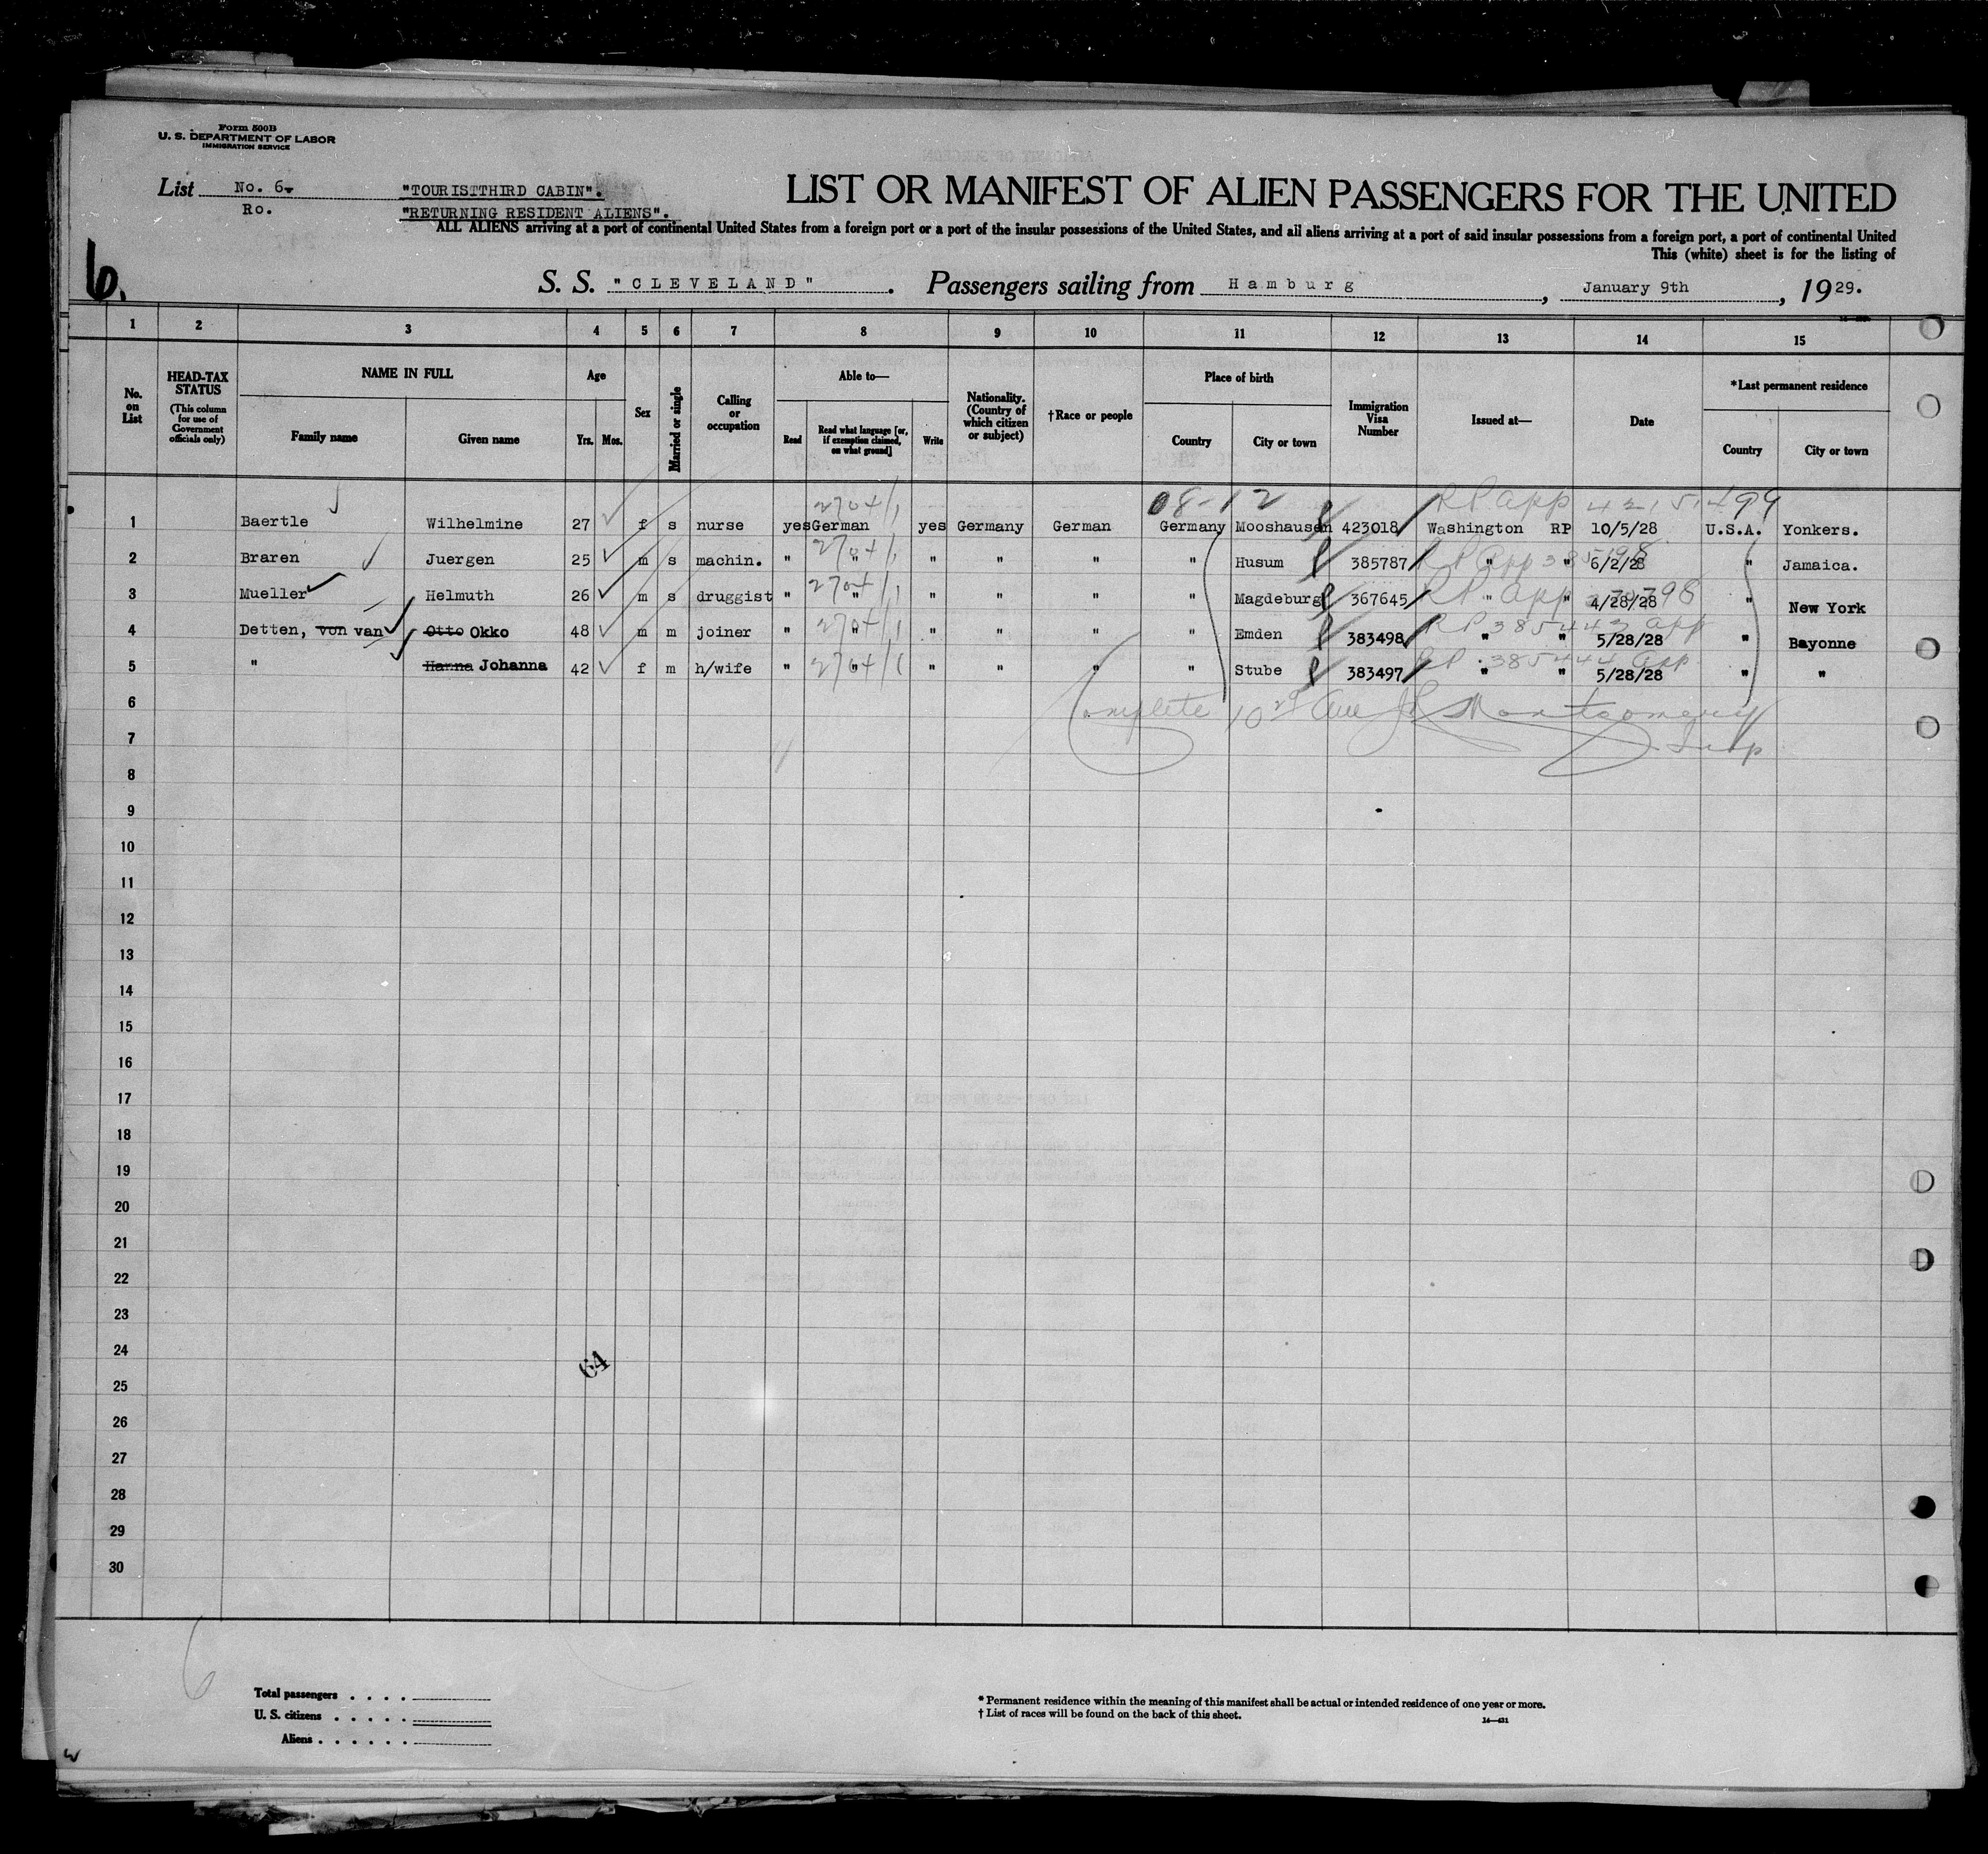 Form 500B
U. S. DEPARTMENT OF LABOR
IMMIGRATION SERVICE
List No. 6. "TOURISTTHIRD CABIN".
Ro. "RETURNING RESIDENT ALIENS".
LIST OR MANIFEST OF ALIEN PASSENGERS FOR THE UNITED
ALL ALIENS arriving at a port of continental United States from a foreign port or a port of the insular possessions of the United States, and all aliens arriving at a port of said insular possessions from a foreign port, a port of continental United
This (white) sheet is for the listing of
6.
S. S. "CLEVELAND". Passengers sailing from Hamburg, January 9th, 1929.
1 2 3 4 5 6 7 8 9 10 11 12 13 14 15
No. on List
HEAD-TAX STATUS
(This column for use of Government officials only)
NAME IN FULL
Family name Given name
Age
Yrs. Mos.
Sex
Married or single
Calling or occupation
Able to—
Read Read what language [or, if exemption claimed, on what ground] Write
Nationality. (Country of which citizen or subject)
†Race or people
Place of birth
Country City or town
Immigration Visa Number
Issued at—
Date
*Last permanent residence
Country City or town
2704/1 08-12 RP app 42151499
1 Baertle Wilhelmine 27 f s nurse yes German yes Germany German Germany Mooshausen 423018 Washington RP 10/5/28 U.S.A. Yonkers.
2704/1 RP app
2 Braren Juergen 25 m s machin. " " " " " " Husum 385787 " " 6/2/28 " Jamaica.
2704/1 RP app
3 Mueller Helmuth 26 m s druggist " " " " " " Magdeburg 367645 " " 4/28/28 " New York
2704/1 RP 385443 app
4 Detten, von van Otto Okko 48 m m joiner " " " " " " Emden 383498 " " 5/28/28 " Bayonne
2704/1 RP 385444 app
5 " Hanna Johanna 42 f m h/wife " " " " " " Stube 383497 " " 5/28/28 " "
6 Complete Montgomery
7 Insp
8
9
10
11
12
13
14
15
16
17
18
19
20
21
22
23
24
64
25
26
27
28
29
30
6
Total passengers . . . .
U. S. citizens . . . . .
Aliens . . . . . .
* Permanent residence within the meaning of this manifest shall be actual or intended residence of one year or more.
† List of races will be found on the back of this sheet.
14—431
W